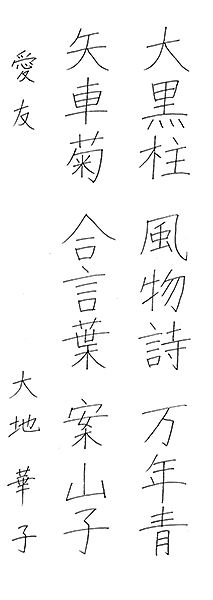 大黒柱 風物詩 万年青
矢車菊 合言葉 案山子
愛友 大地 華子